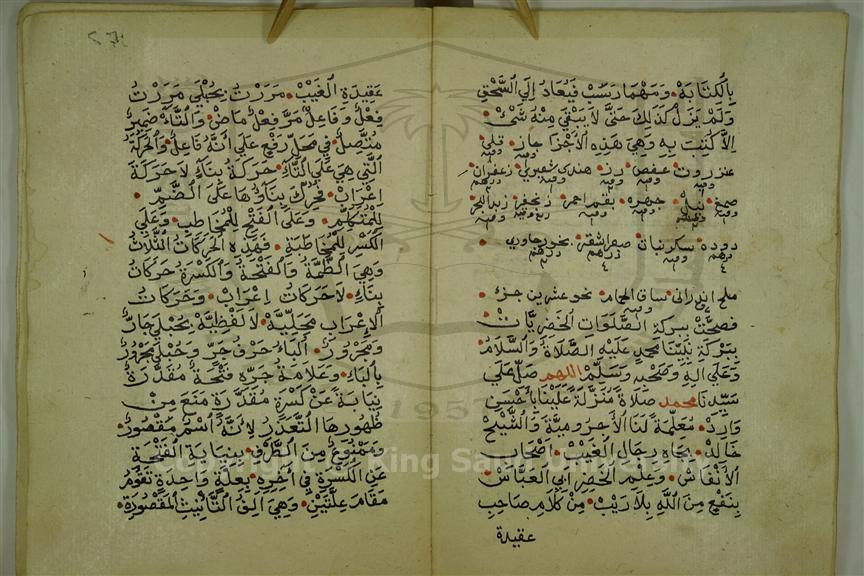 بِالْكِتَابَةْ وَمَهْمَا رَسَبَ فَيُعَادُ إِلَي السَّحْقِ
وَلَمْ يَزَلْ كَذَلِكَ حَتَّى لَا يَبْقَى مِنْهُ شَيْئٌ
إِلَّا كُتِبَ بِهِ وَهِيَ هَذِهِ الْأَجْزَا جاز قلي
عنزروت عفص رز هندى شعيرى زعفران
صمغ نيل جوهره بقم احمر زنجفر زبد البحر
دوده سكر نبات صبر
ملح اندرانى ساق الحمام نحو عشرين جزء
فصحّت ببركة الصَّلَوَات الْخَضِرِيَّاتْ
بِبَرَكَةِ نَبِيِّنَا مُحَمَّدٍ عَلَيْهِ الصَّلَاةُ وَالسَّلَامُ
وَعَلَي اَلِهِ وَصَحْبِهِ وَسَلِّمْ اللهم صَلِّ عَلَي
سَيِّدِنَا محمد صَلَاةً مُنَزَّلَةً عَلَيْنَا بِأَحْسَنِ
وَارِدْ مُعَلِّمَةً لَنَا الْأَجْرُومِيَّةَ وَالشَّيْخْ
خَالِدْ بِجَاهِ رِجَالِ الْغَيْبْ أَصْحَابِ
الْأَنْفَاسْ وَعِلْمِ الْخَضِرِ أَبِي الْعَبَّاسْ
بِنَفْعٍ مِنَ اللَّهِ بِلَا رَيْبْ مِنْ كَلَامِ صَاحِبِ
عقيدة
عَقِيدَةِ الْغَيْبْ مَرَرْتُ بِحُبْلَي مَرَرْتُ
فِعْلٌ وَفَاعِلْ مَرَّ فِعْلٌ مَاضٍ وَالتَّاءُ ضَمِيرٌ
مُتَّصِلٌ فِي مَحَلِّ رَفْعٍ عَلَي أَنَّهُ فَاعِلْ وَالْحَرَكَةُ
الَّتِي هِيَ عَلَي التَّاءِ حَرَكَةُ بِنَاءٍ لَا حَرَكَةُ
إِعْرَابْ فَحُرِّكَ بِنَاؤُهَا عَلَى الضَّمِّ
لِلْمُتَكَلِّمِ وَعَلَى الْفَتْحِ لِلْمُخَاطَبِ وَعَلَي
الْكَسْرِ لِلْمُخَاطَبَةِ فَهَذِهِ الْحَرَكَاتُ الثَّلَاثُ
وَهِيَ الضَّمَّةُ وَالْفَتْحَةُ وَالْكَسْرَةُ حَرَكَاتُ
بِنَاءٍ لَا حَرَكَاتُ إِعْرَابْ وَحَرَكَاتُ
الْإِعْرَابِ مَحَلِّيَّةٌ لَا لَفْظِيَّةْ بِحُبْلَي جَارٌّ
وَمَجْرُورْ الْبَاءُ حَرْفُ جَرٍّ وَحُبْلَي مَجْرُورٌ
بِالْبَاءِ وَعَلَامَةُ جَرِّهِ فَتْحَةٌ مُقَدَّرَةٌ
نِيَابَةً عَنْ كَسْرَةٍ مُقَدَّرَةٍ مَنَعَ مِنْ
ظُهُورِهَا التَّعَذُّرُ لِأَنَّهُ اسْمٌ مَقْصُورْ
وَمَمْنُوعٌ مِنَ الصَّرْفِ بِنِيَابَةِ الْفَتْحَةِ
عَنِ الْكَسْرَةِ فِي أَخِرِهِ بِعِلَّةٍ وَاحِدَةٍ تَقُومُ
مَقَامَ عِلَّتَيْنِ وَهِيَ أَلِفُ التَّأْنِيثِ الْمَقْصُورَةِ
1957
Copyright © King Saud University